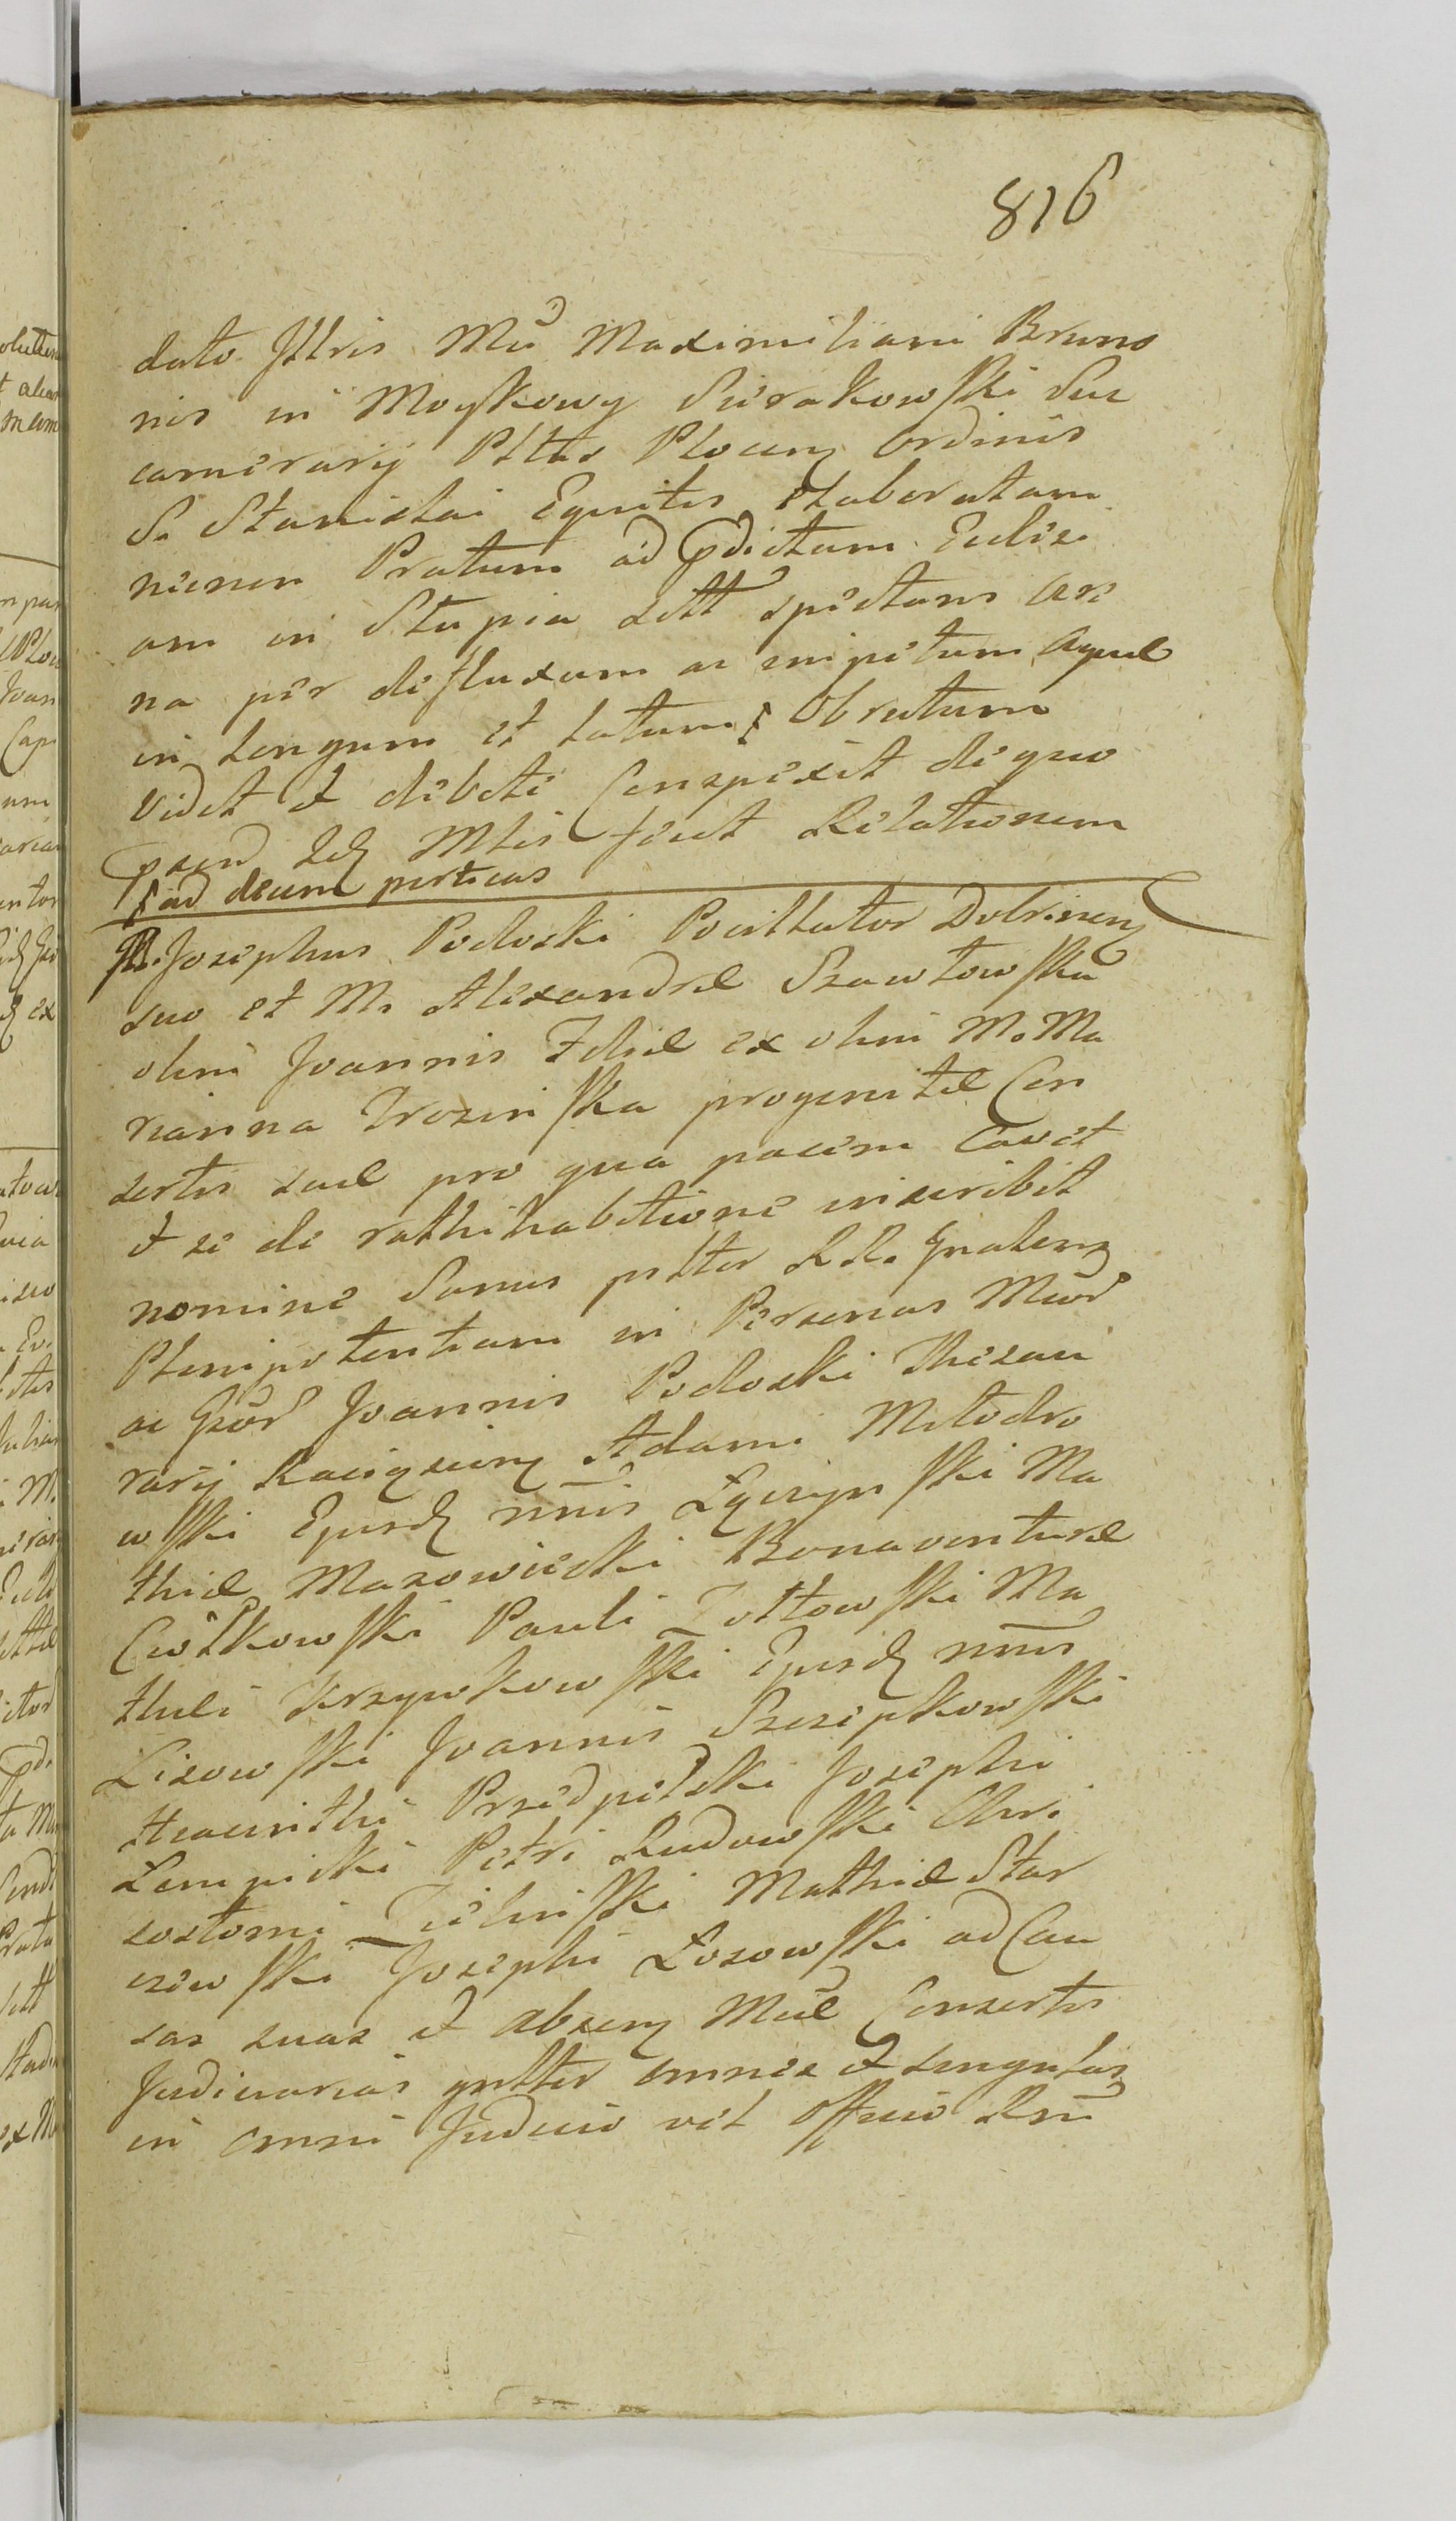 816
dato Jllris Mci Maximiliani Bruno
nis in Moyskowy Sierakowski Suc
camerarij Plttus Plocen Ordinis
S. Stanislai Equitis Elaboratam
nienen Pratum ad pdictam Eclesi
am in Słupia sltt spectans are
na per defluxum ac impetum Aquæ
in Longum et latum Obrutum
Vidit et debite Conspexit de quo
Mltis fecit Relationem
ad decem perticas
M. Josephus Podoski Pocillator Dobrinen
suo et M. Alexandræ Szawłowska
olim Joannis Filiæ ex olim M. Ma
rianna Trozinska progenitæ Con
sortis suæ pro qua pacem Cavet
et se de rathihabitione inscribit
nomine Sanus plltter R.R. Gnalem
Plenipotentiam in Personas Mcor
ac Gsor Joannis Podoski Thesau
rarij Raciązin Adami Młodro
wski Ejusd nnis Łęczynski Ma
thiæ Mazowiecki Bonaventuræ
Ciołkowski Pauli Zołtowski Ma
thei Krzywkowski Ejusd nnis
Lisowski Joannis Szczepkowski
Hiacinthi Przedpełski Josephi
Lempicki Petri Rudowski Chri
sostomi Zielinski Mathiæ Star
czewski Josephi Łosowski ad Cau
sas suas et absen Mcæ Consortis
Judiciarias gnltter omnes et singulas
in omni Judicio vel Officio Rni